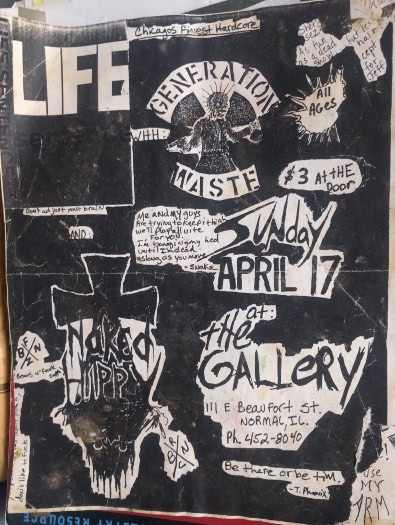 Chicagos Finest Hardcore
LIFE
GENERATION
WASTE
All
AGES
WITH:
$3 At tHE
Door
Don't act just move brain
AND:
Me and my guys
Are trying to keep it that
we'll play all nite
For you.
I'm banging my hed
until I'm dead
as long as you move
+ Snake
SUNday
APRIL 17
at:
the
GALLERY
111 E Beaufort St.
NORMAL, IL.
Ph. 452-8040
Naked
HIPPY
Be there or be tim,
-T. Phoenix
USE
MY
ARM
RESOURCE